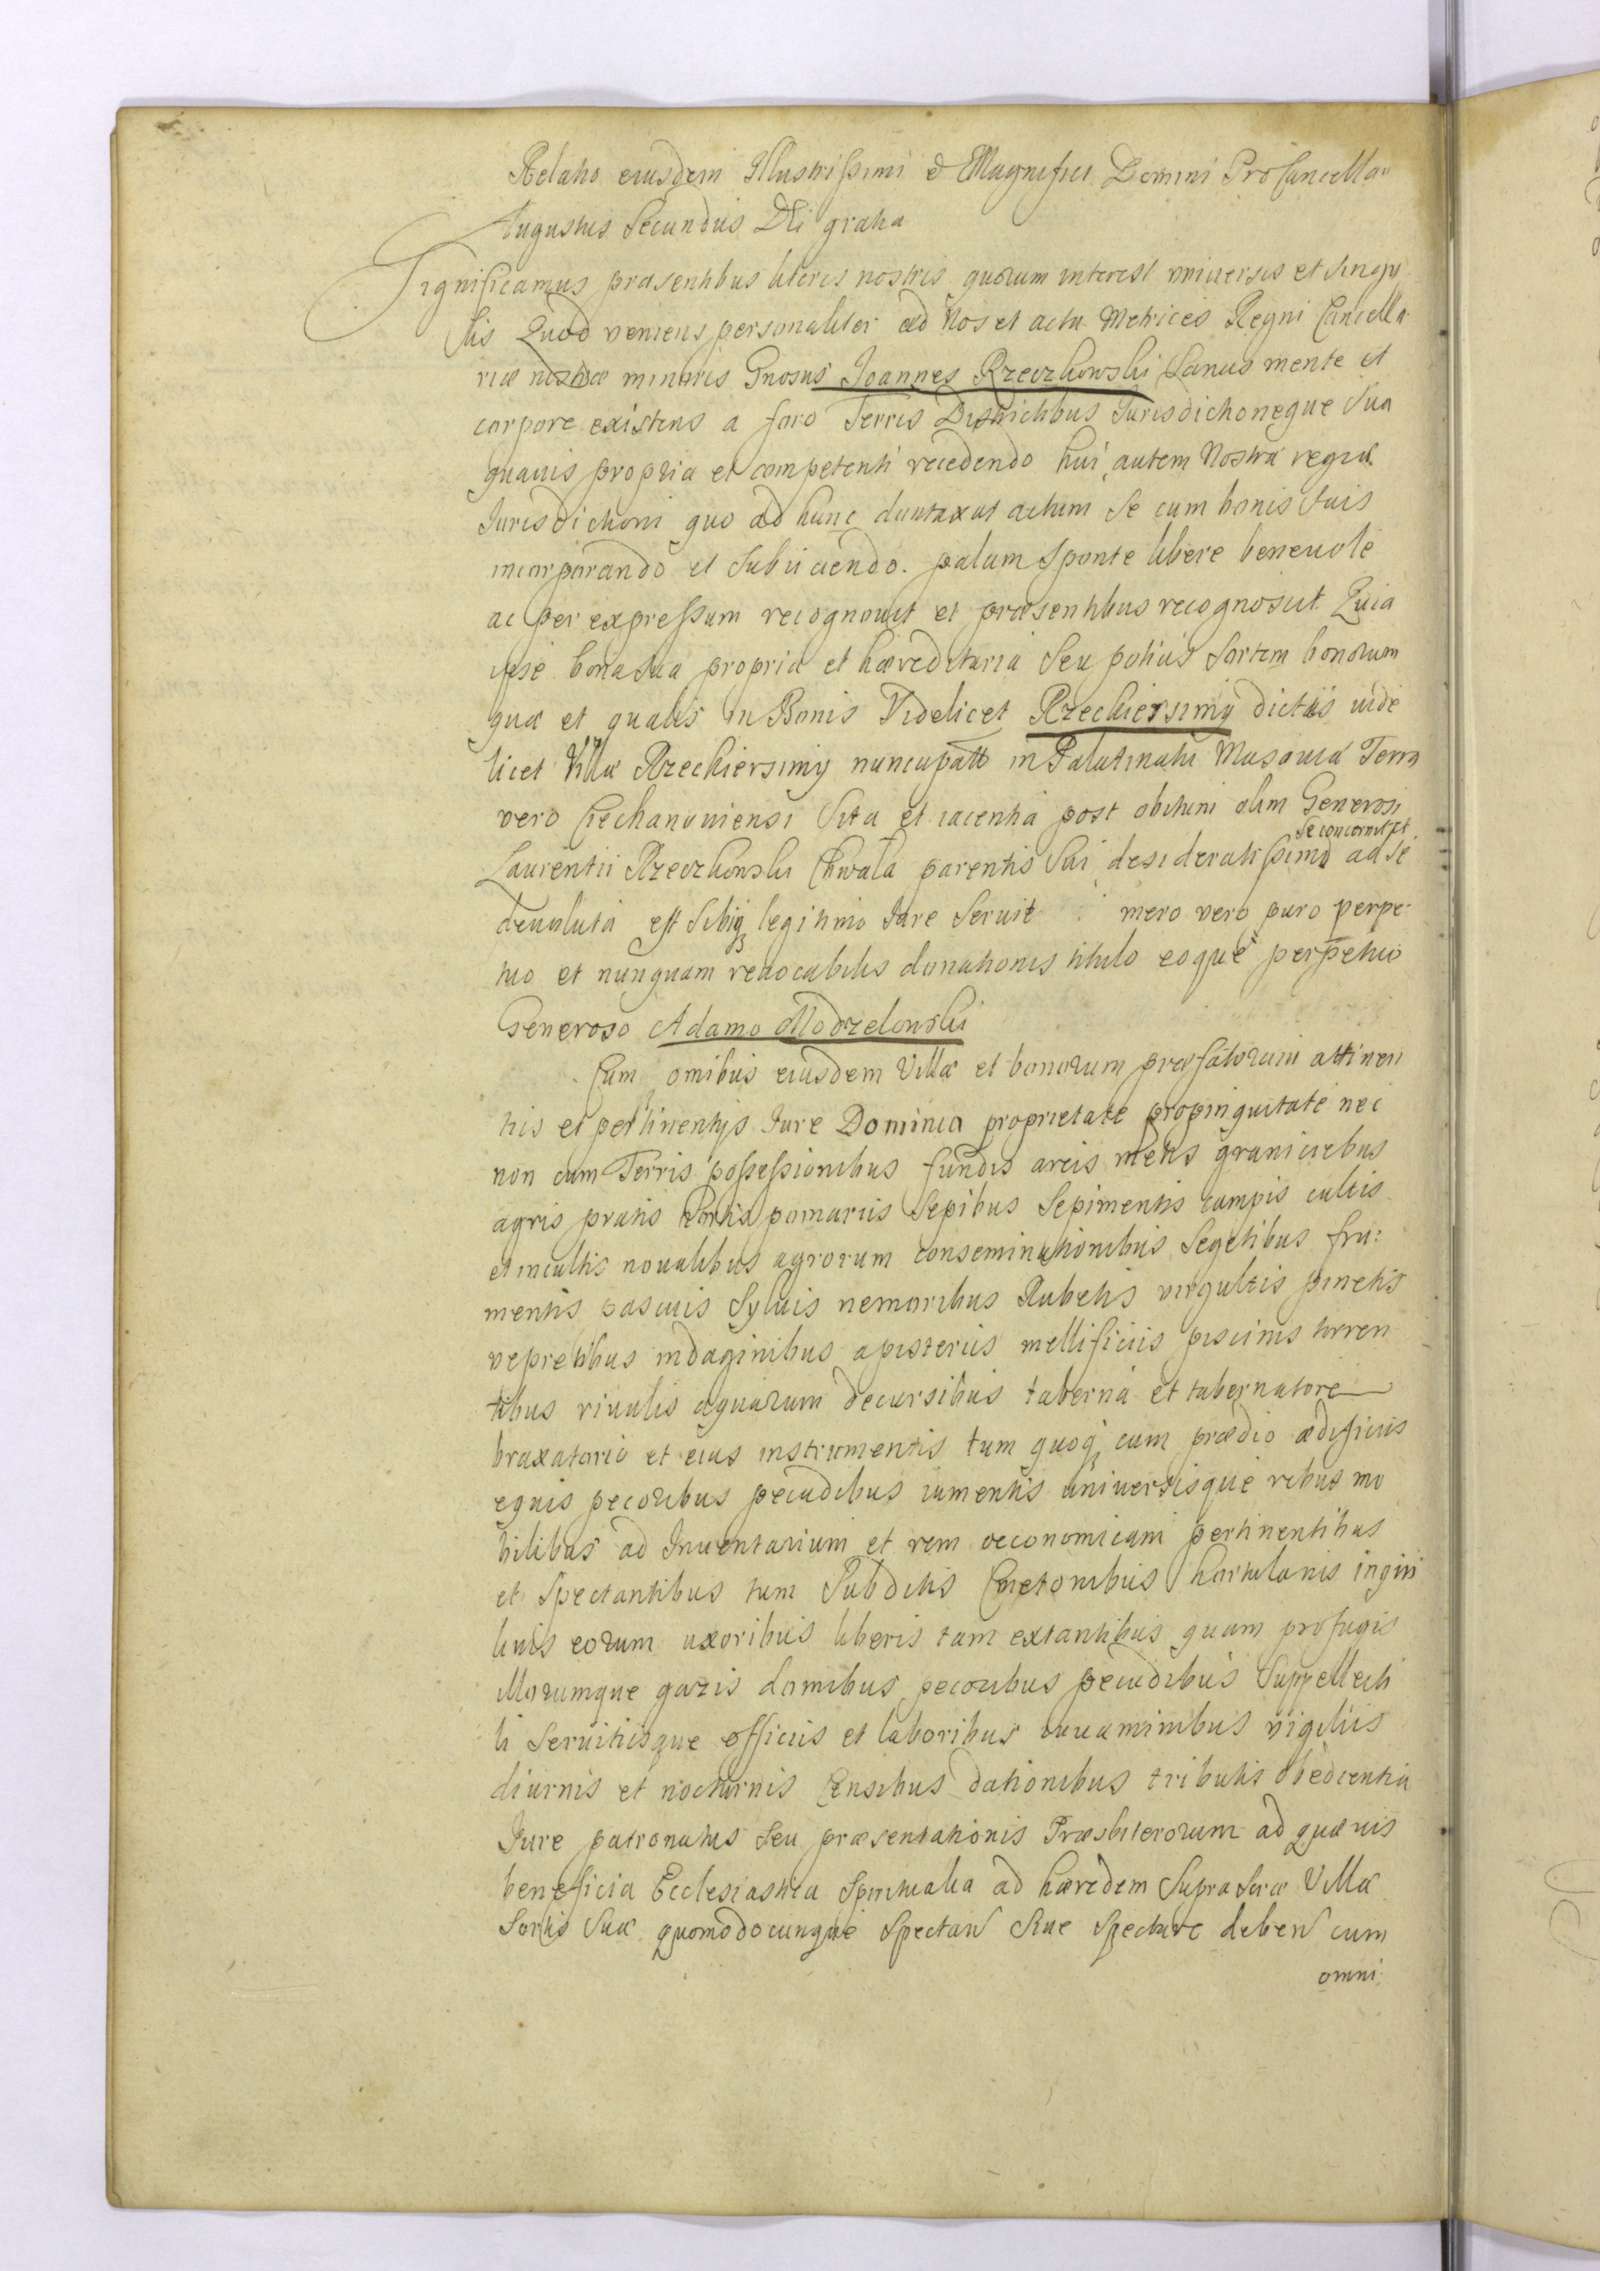 Relatio eiusdem Illustrissimi et Magnifici Domini ProCancella
Augustus Secundus DEi gratia
Significamus præsentibus literis nostris quorum interest vniuersis et singu
lis Quod veniens personaliter ad Nos et acta Metrices Regni Cancella
riæ nostræ minoris Gnosus Joannes Rzeczkowski sanus mente et
corpore existens a foro Terris Districtibus Jurisdictioneque sua
quauis propria et competenti recedendo hui autem Nostræ regiæ
Jurisdictioni quo ad hunc duntaxat actum se cum bonis suis
incorporando et subiiciendo. palam sponte libere beneuole
ac per expressum recognouit et præsentibus recognoscit Quia
ipse bona sua propria et hæreditaria seu potius sortem bonorum
quæ et qualis in Bonis Videlicet Rzechiersimy dictis vide
licet Villæ Rzechiersimy nuncupatt in Palatinatu Masouiæ Terra
vero Ciechanouiensi sita et iacentia post obitum olim Generosi
Laurentii Rzeczkowski Chwała parentis sui desideratissimo ad se
se concernit et
deuoluta est sibiq legitimo Jure seruit mero vero puro perpe
tuo et nunquam reuocabilis donationis titulo eoque perpetuo
Generoso Adamo Modzelowski
Cum omibus eiusdem Villæ et bonorum præfatorum attinen
tiis et pertinentijs Jure Dominio proprietate propinquitate nec
non cum Terris possessionibus fundis areis metis graniciebus
agris pratis hortis pomariis sepibus sepimentis campis cultis
et incultis noualibus agrorum conseminationibus segetibus fru:
mentis pascuis syluis nemoribus Rubetis virgultis pinetis
vepretibus indaginibus apisteriis mellificiis piscinis torren
tibus riuulis aquarum decursibus taberna et tabernatore
braxatorio et eius instrumentis tum quoq cum prædio ædificiis
equis pecoribus pecudibus iumentis uniuersisque rebus mo
bilibus ad Inuentarium et rem oeconomicam pertinentibus
et spectantibus tum Subditis Cmetonibus hortulanis inqui
linis eorum uxoribus liberis tam extantibus quam profugis
illorumque gazis domibus pecoribus pecudibus suppellecti
li seruitiisque officiis et laboribus iuuaminibus vigiliis
diurnis et nocturnis Censibus dationibus tributis obedientia
Jure patronatus seu præsentationis Præsbiterorum ad quæuis
beneficia Ecclesiastica spiritualia ad hæredem suprascræ Villæ
sortis suæ quomodocunque spectan siue spectare deben cum
omni